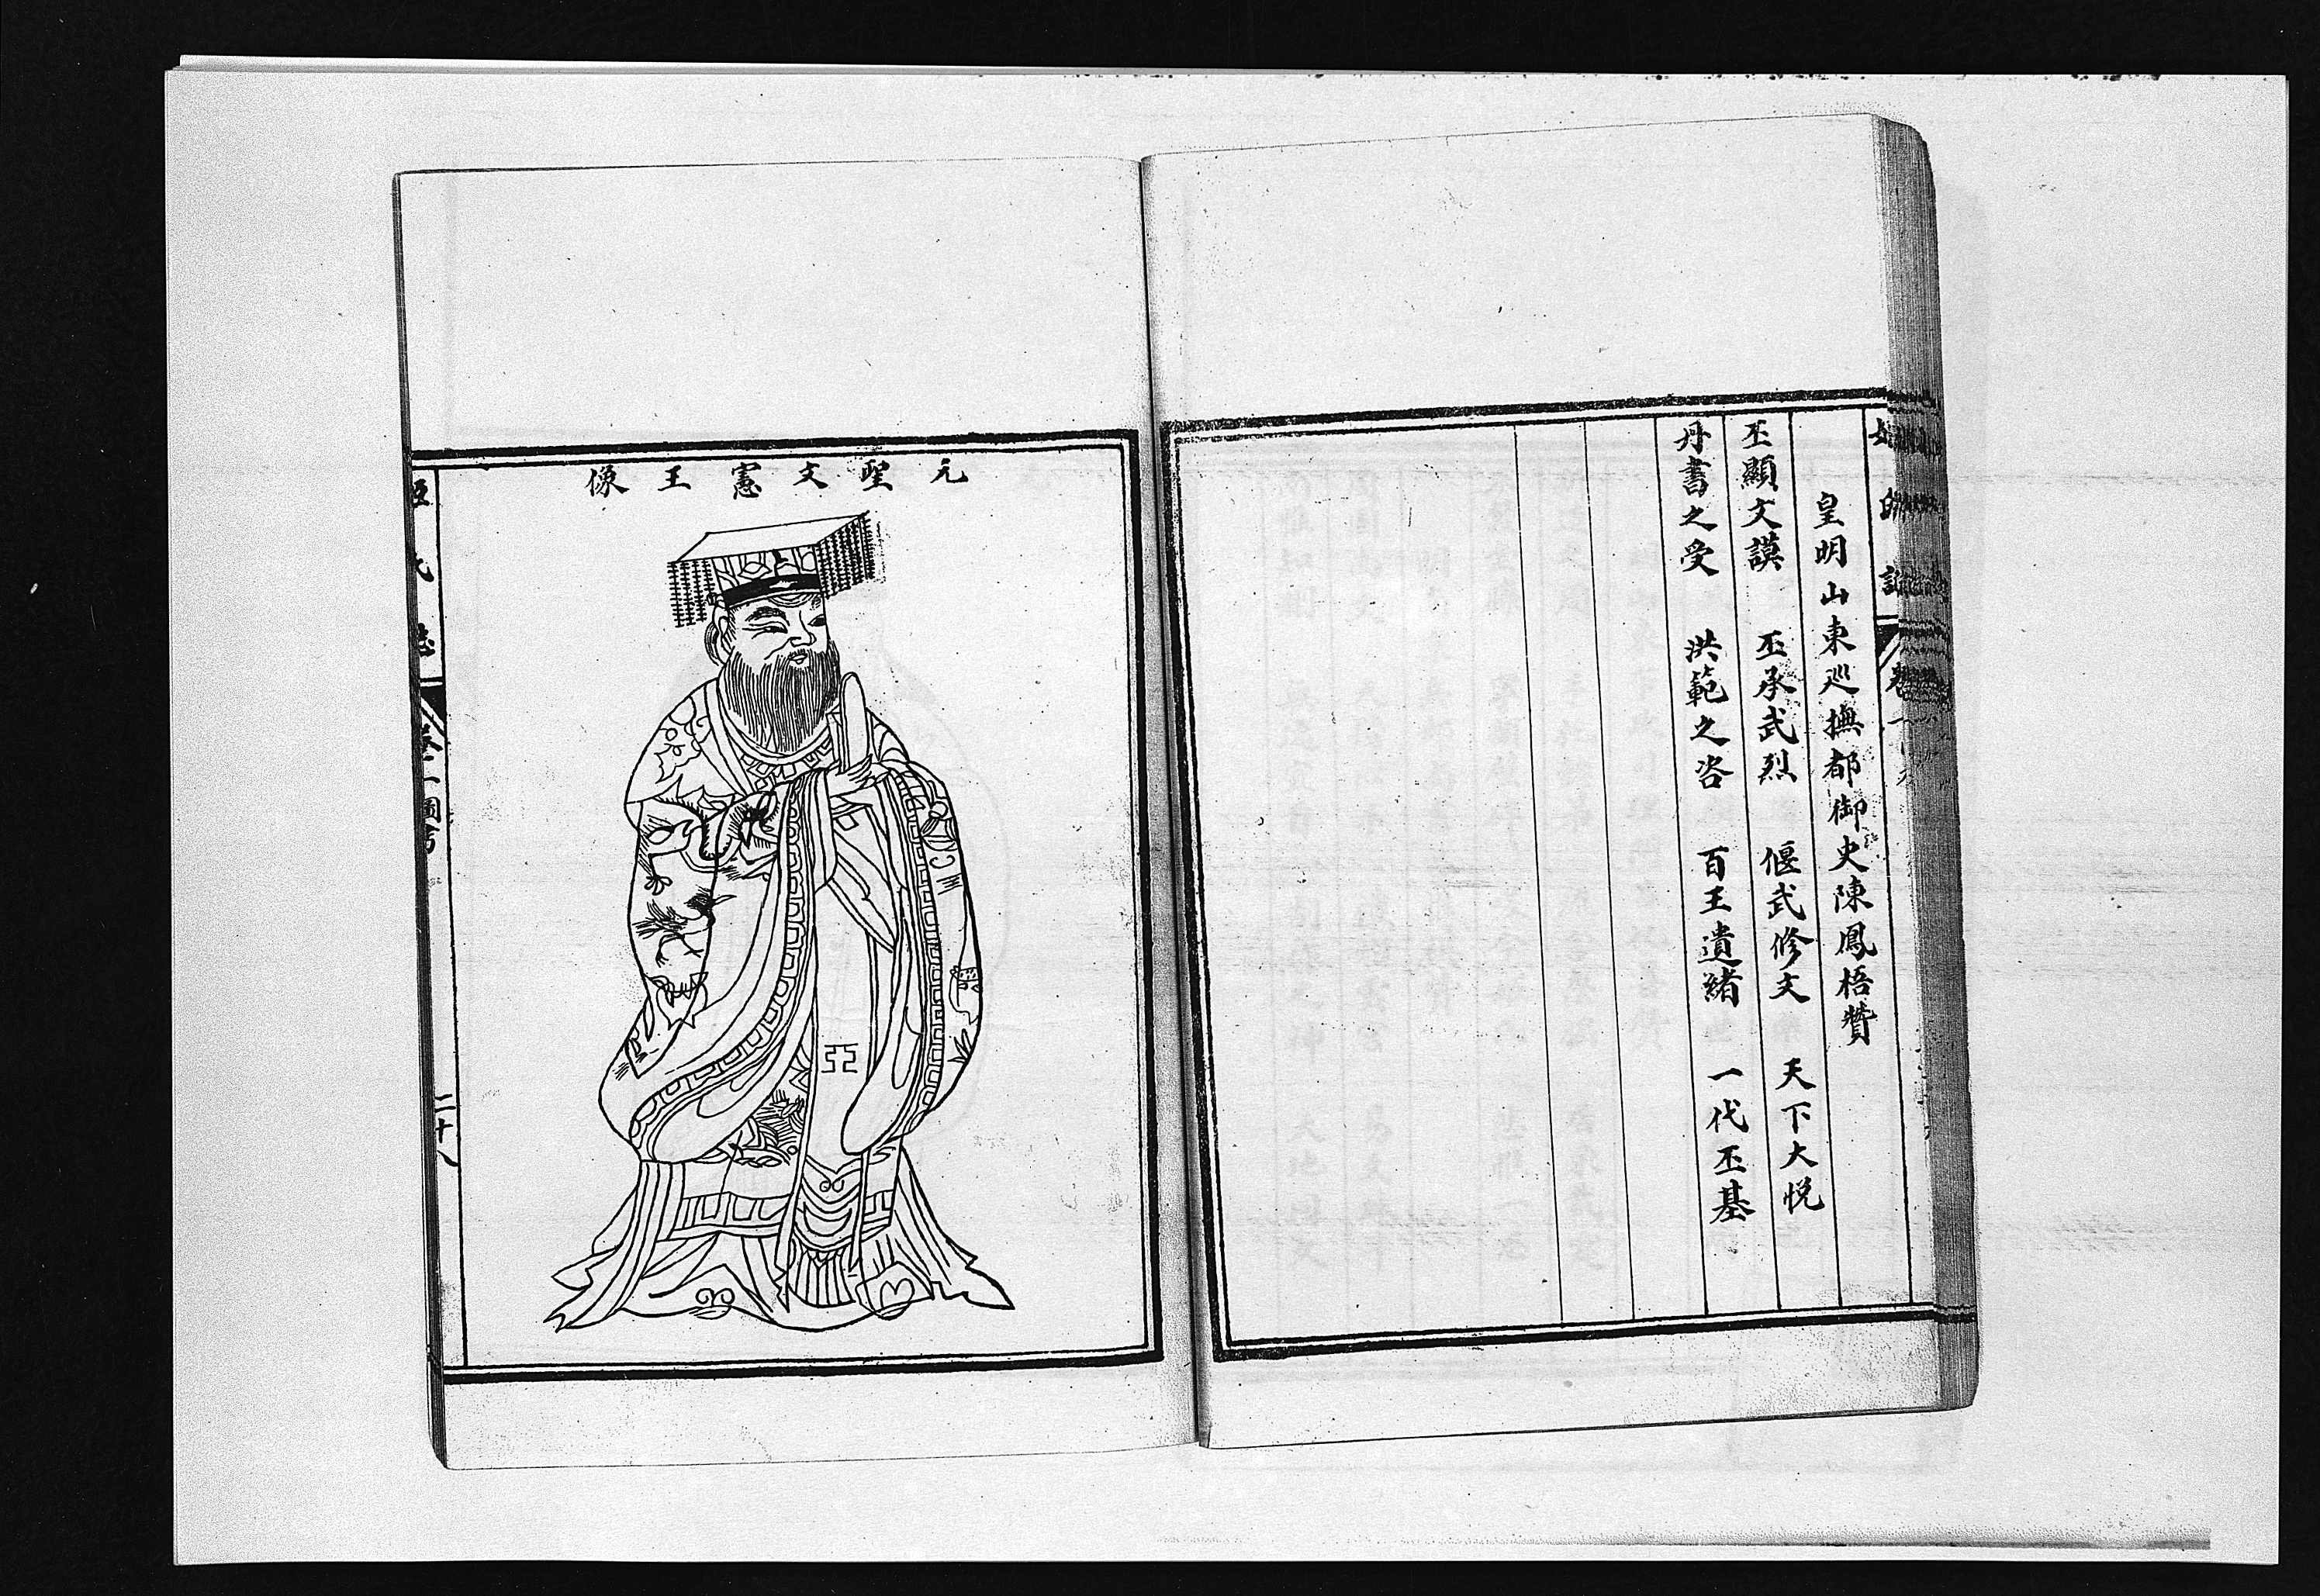 皇明山東巡撫都御史陳鳳梧贊
丕顯文謨　丕承武烈　偃武修文　天下大悦
丹書之受　洪範之咨　百王遺緒　一代丕基
元聖文憲王像
二十八